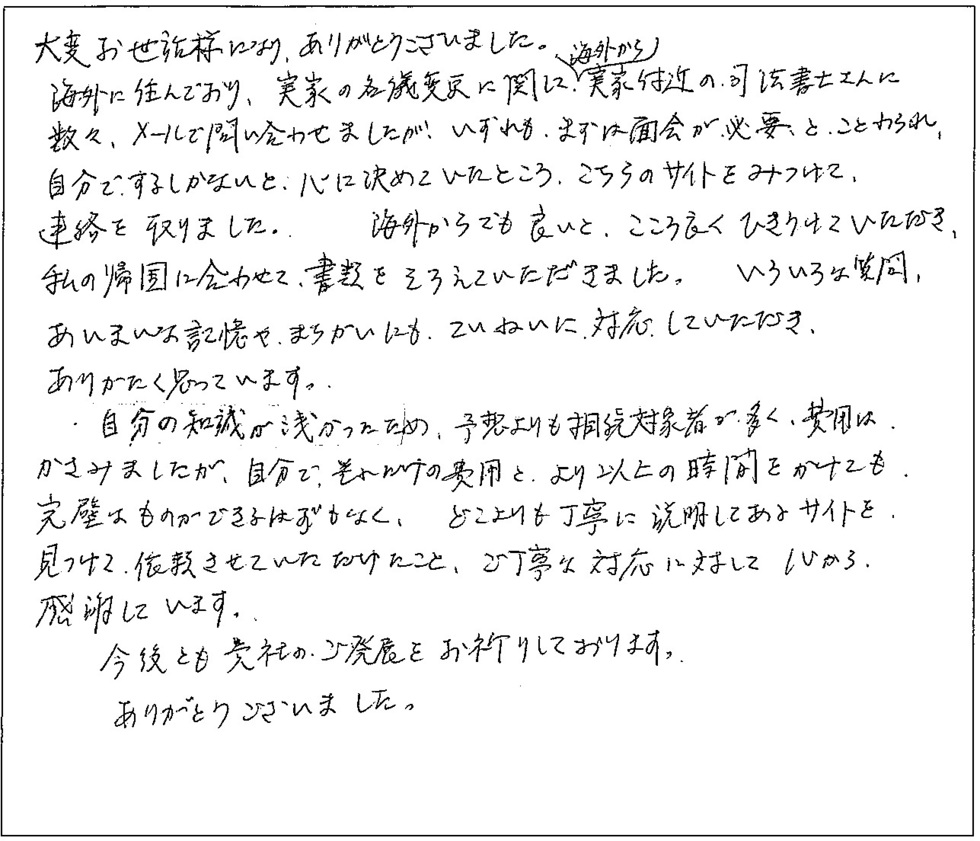 大変お世話様になり、ありがとうございました。
海外から
海外に住んでおり、実家の名儀変更に関して、実家付近の司法書士さんに
数々、メールで問い合わせましたが、いずれも、まずは面会が必要、と、ことわられ、
自分でするしかないと、心に決めていたところ、こちらのサイトをみつけて、
連絡を取りました。 海外からでも良いと、こころ良くひきうけていただき、
私の帰国に合わせて、書類をそろえていただきました。 いろいろな質問、
あいまいな記憶や、まちがいにも、ていねいに対応していただき、
ありがたく思っています。
・自分の知識が浅かったため、予想よりも相続対象者が多く、費用は
かさみましたが、自分で、それだけの費用と、より以上の時間をかけても
完璧なものができるはずがなく、 どこよりも丁寧に説明してあるサイトを
見つけて、依頼させていただけたこと、ご丁寧な対応に対して心から
感謝しています。
今後とも貴社のご発展をお祈りしております。
ありがとうございました。